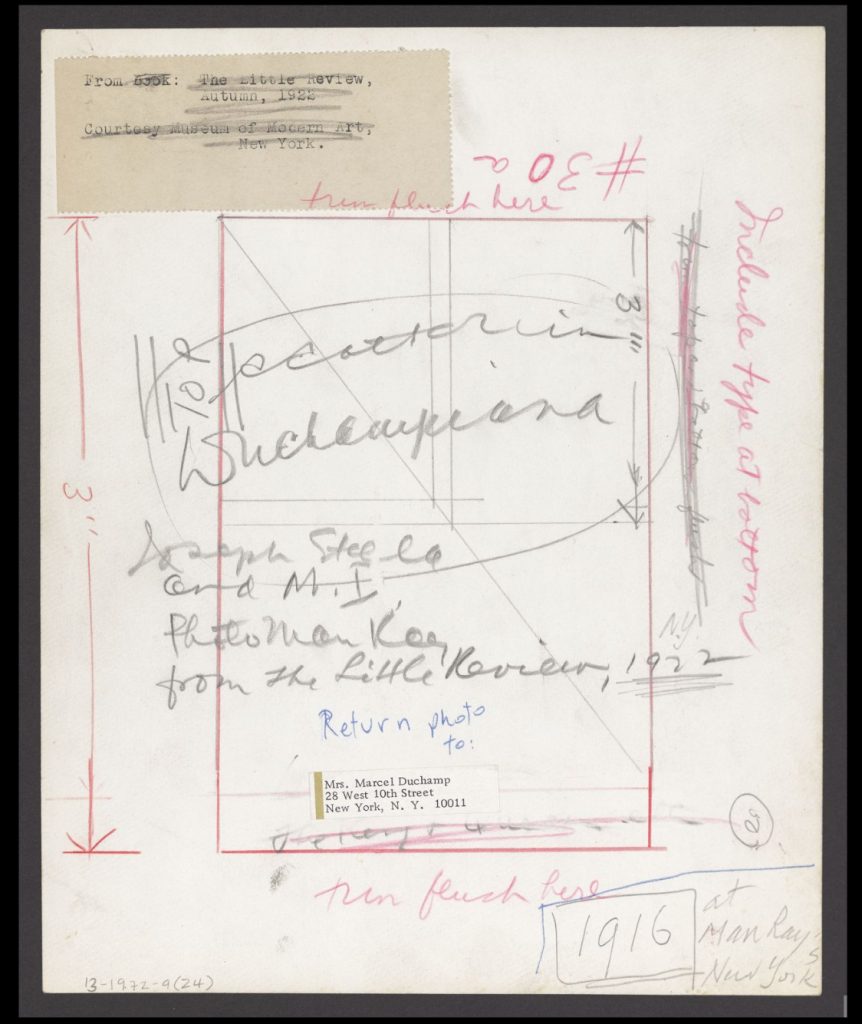 From book: The Little Review,
Autumn, 1922
Courtesy Museum of Modern Art,
New York.
#30a
trim flush here
Include type at bottom
3"
3"
Duchampiana
Joseph Stella
and M.
Photo Man Ray
from the Little Review, 1922
N.Y.
Return photo
to:
Mrs. Marcel Duchamp
28 West 10th Street
New York, N. Y. 10011
trim flush here
1916
at
Man Ray's
New York
13-1972-9(24)